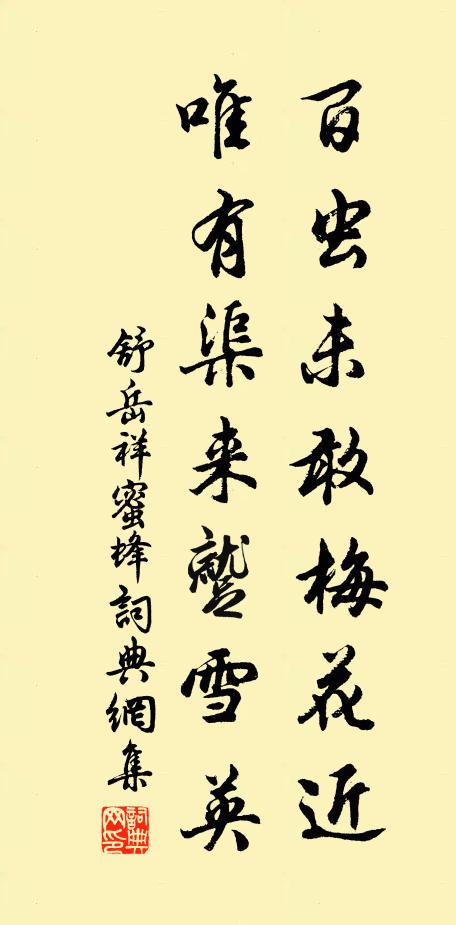 百虫未敢梅花近
唯有渠来蹵雪英
舒岳祥蜜蜂詞典網集
詞典网印